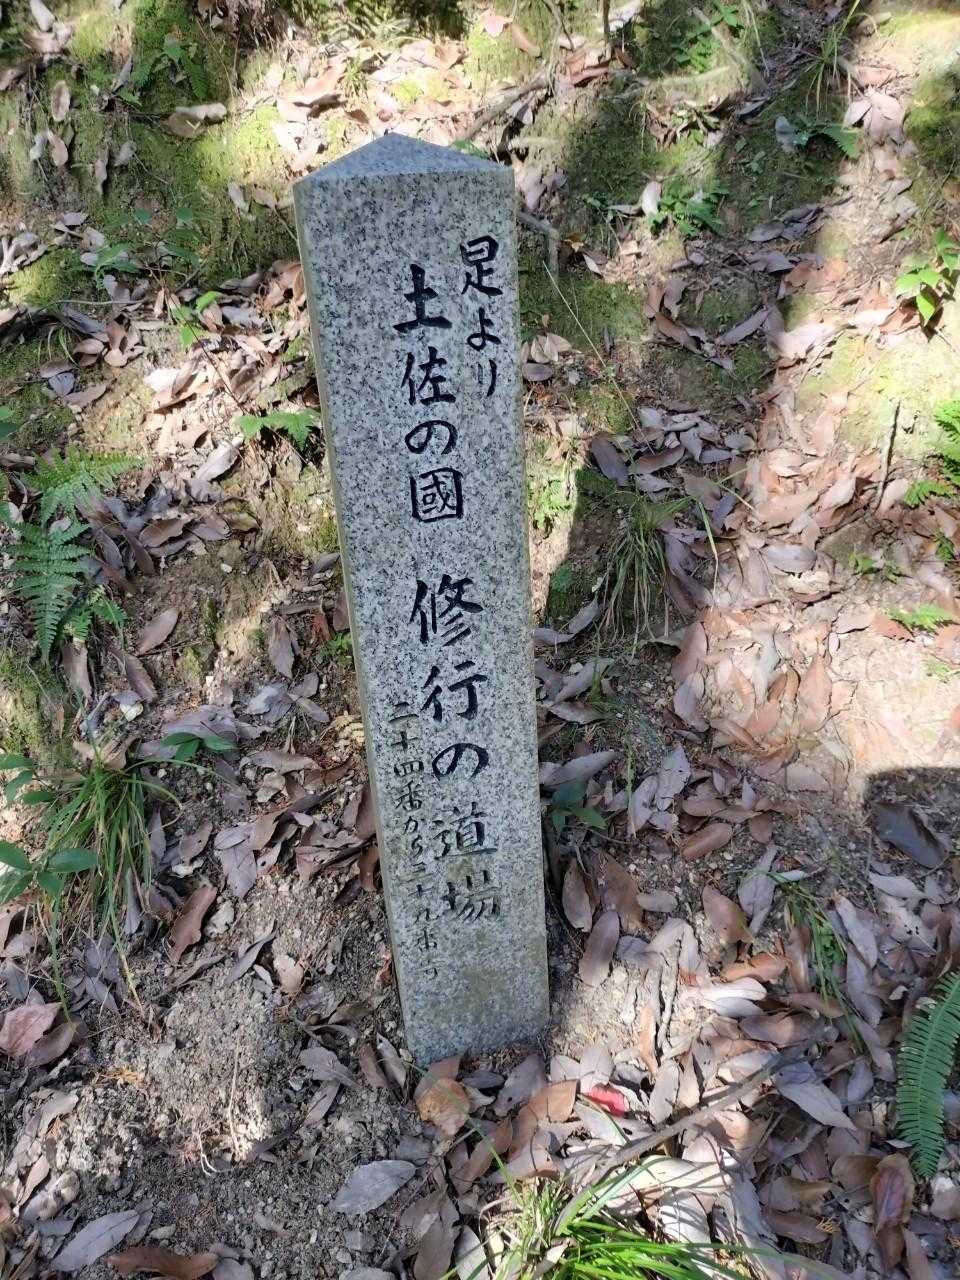 是より
土佐の國 修行の道場
二十四番から三十九番寺